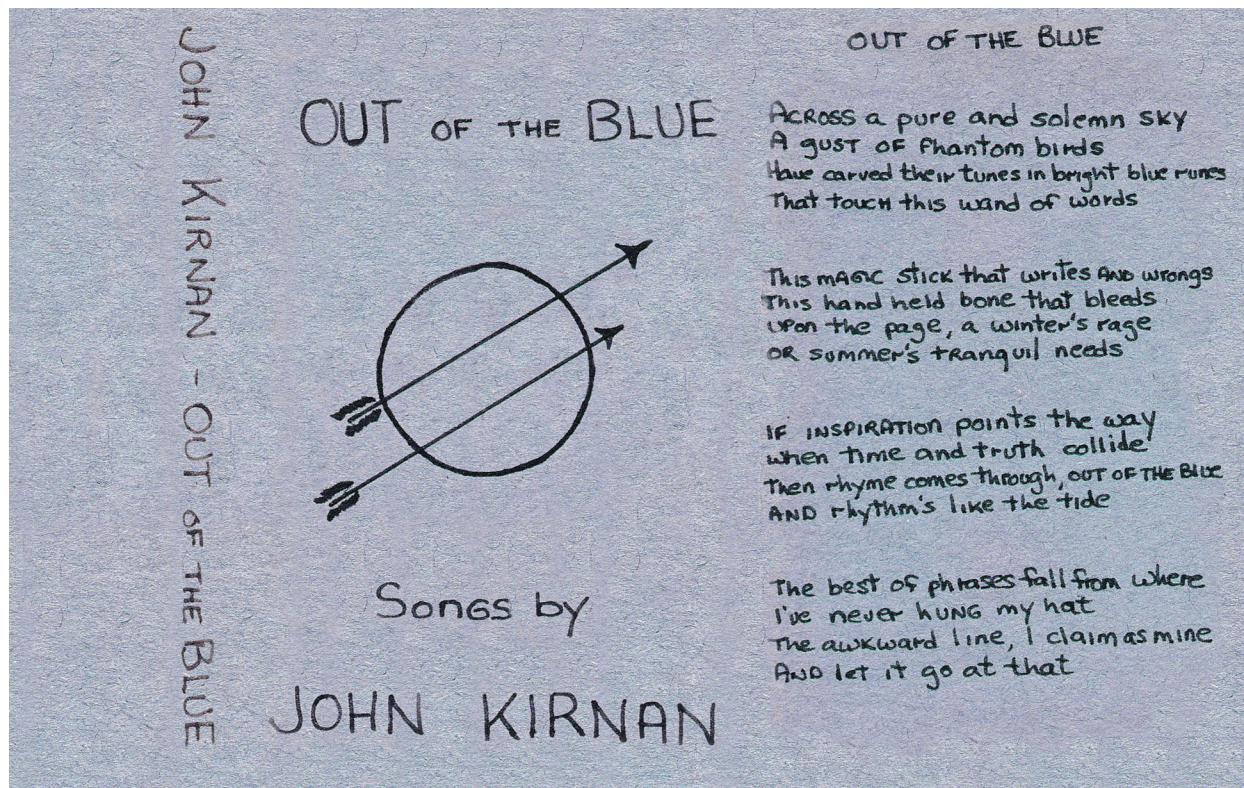 JOHN KIRNAN - OUT OF THE BLUE
OUT OF THE BLUE
Songs by
JOHN KIRNAN
OUT OF THE BLUE
Across a pure and solemn sky
A gust of Phantom birds
Have carved their tunes in bright blue runes
That touch this wand of words
This magic stick that writes and wrongs
This hand held bone that bleeds
Upon the page, a winter's rage
Or summer's tranquil needs
If inspiration points the way
when time and truth collide
Then rhyme comes through, OUT OF THE BLUE
And rhythm's like the tide
The best of phrases fall from where
I've never hung my hat
The awkward line, I claim as mine
And let it go at that